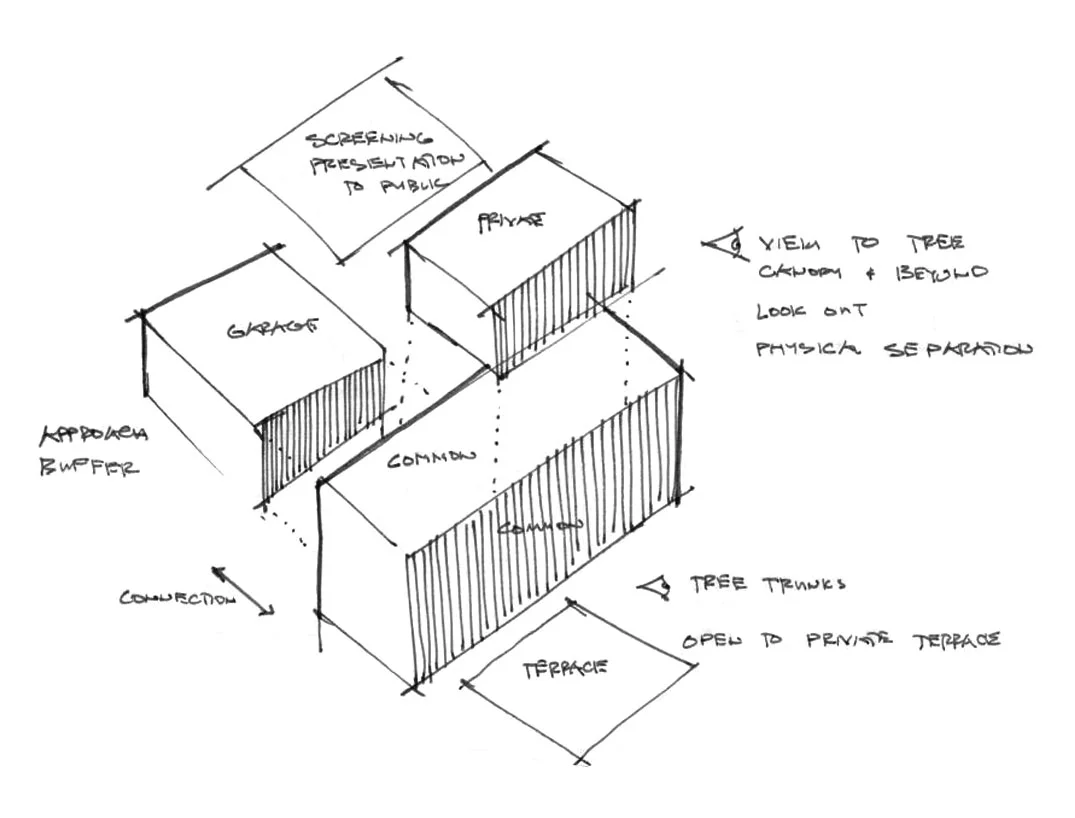 SCREENING
PRESENTATION
TO PUBLIC
PRIVATE
GARAGE
VIEW TO TREE
CANOPY & BEYOND
LOOK OUT
PHYSICAL SEPARATION
APPROACH
BUFFER
COMMON
COMMON
CONNECTION
TREE TRUNKS
OPEN TO PRIVATE TERRACE
TERRACE